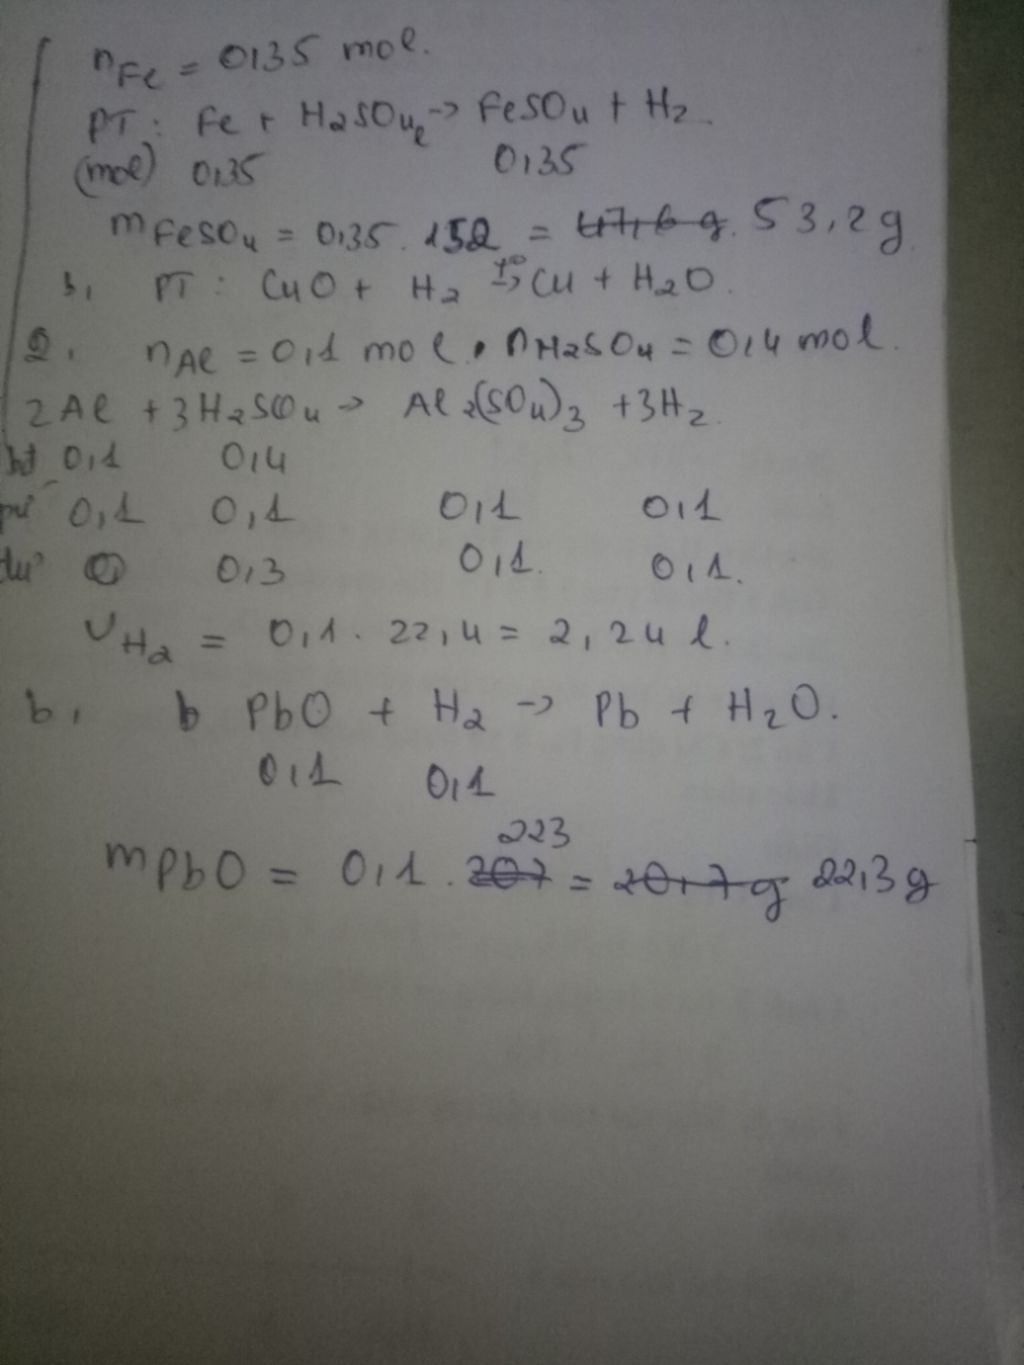 nFe = 0,35 mol.
PT: Fe + H2SO4l -> FeSO4 + H2.
(mol) 0,35 0,35
mFeSO4 = 0,35 . 152 = 47,6 g. 53,2g.
b, PT: CuO + H2 t°-> Cu + H2O.
2, nAl = 0,1 mol, nH2SO4 = 0,4 mol.
2Al + 3H2SO4 -> Al2(SO4)3 + 3H2.
bđ 0,1 0,4
pư 0,1 0,1 0,1 0,1
dư 0 0,3 0,1. 0,1.
VH2 = 0,1. 22,4 = 2,24 l.
b, b PbO + H2 -> Pb + H2O.
0,1 0,1
223
mPbO = 0,1 . 207 = 20,7 g 22,3g